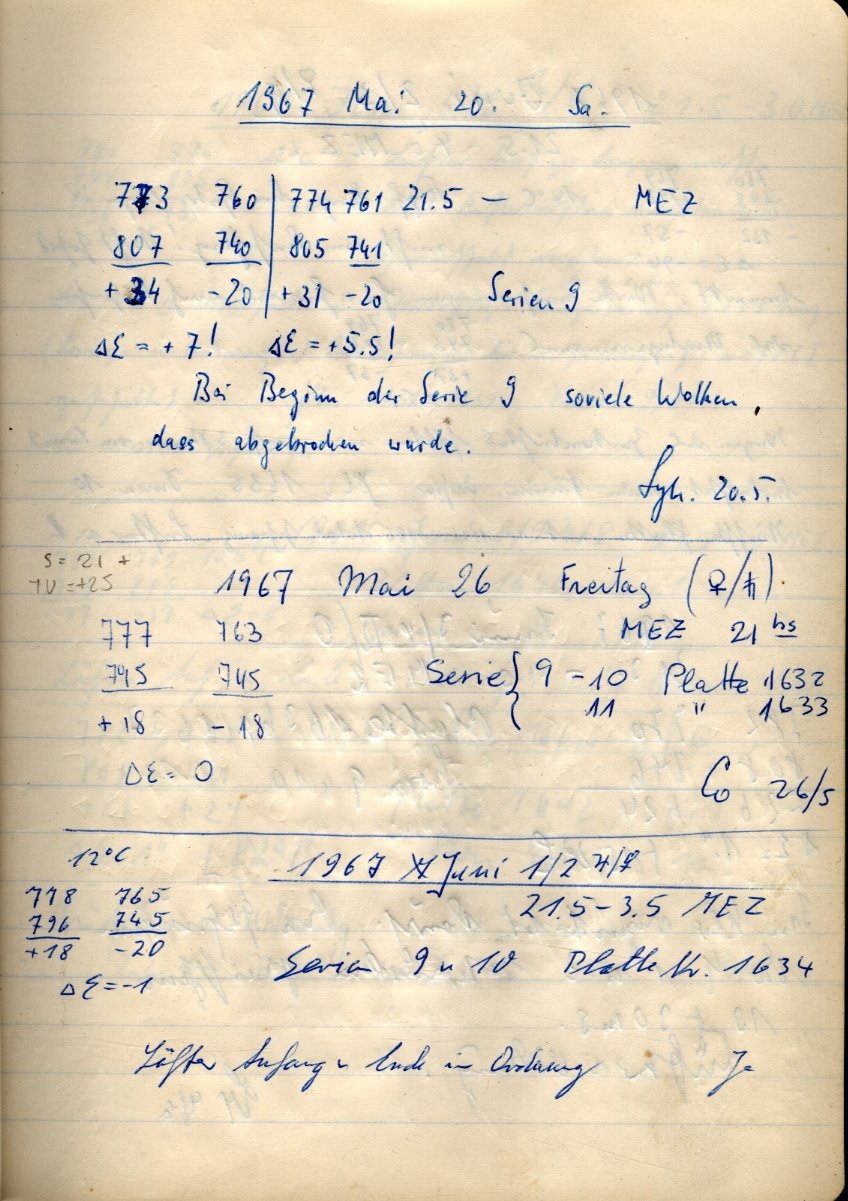 1967 Mai 20. Sa.
773 760 | 774 761 21.5 — MEZ
807 740 | 805 741
+34 -20 | +31 -20 Serien 9
Δε = +7! Δε = +5.5!
Bei Beginn der Serie 9 soviele Wolken,
dass abgebrochen wurde.
20.5.
S = 21 +
= +25
1967 Mai 26 Freitag (♀/♄).
777 763 MEZ 21 hs
795 745 Serie { 9 - 10 Platte 1632
11 " 1633
+18 -18
Δε = 0
Co 26/5
12°C
1967 Juni 1/2 ♃/♀
778 765 21.5 - 3.5 MEZ
796 745
+18 -20 Serien 9 u 10 Platte Nr. 1634
Δε = -1
Lüfter Anfang u Ende in Ordnung